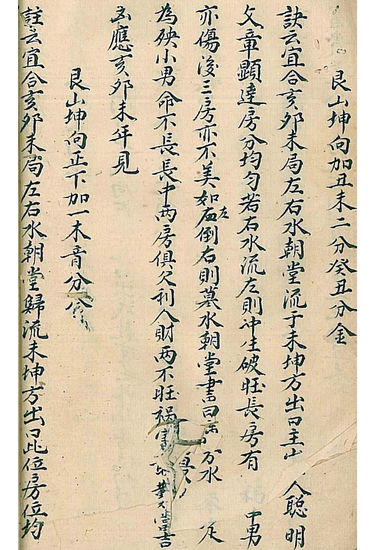 艮山坤向加丑未二分癸丑分金
訣云宜合亥夘未局左右水朝堂流于未坤方出曰主 人聪明
文章顯達房分均勻若右水流左則冲生破旺長房有 男
亦傷後三房亦不美如左倒右則墓水朝堂書曰 水
為殃小男命不長長中两房俱欠利人財两不旺禍
應亥夘未年見
艮山坤向正下加一木音分
註云宜合亥夘未局左右水朝堂歸流未坤方出曰此位房位均